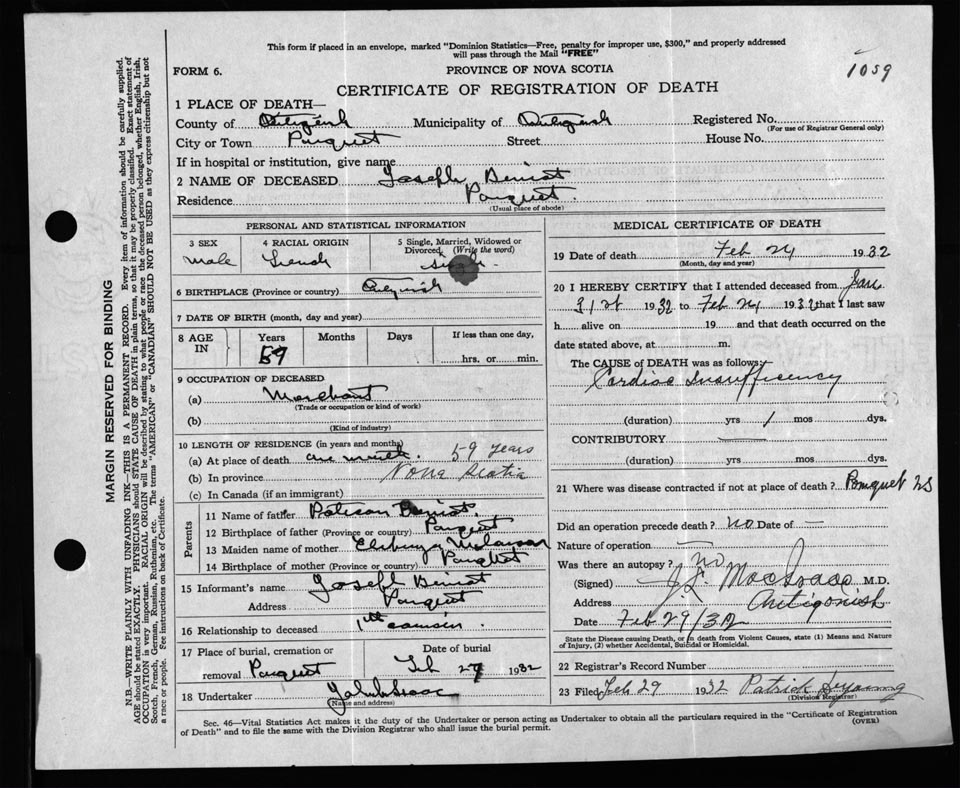 This form if placed in an envelope, marked "Dominion Statistics—Free, penalty for improper use, $300," and properly addressed
will pass through the Mail "FREE"
1059
FORM 6.
PROVINCE OF NOVA SCOTIA
CERTIFICATE OF REGISTRATION OF DEATH
MARGIN RESERVED FOR BINDING
N.B.—WRITE PLAINLY WITH UNFADING INK—THIS IS A PERMANENT RECORD. Every item of information should be carefully supplied.
AGE should be stated EXACTLY. PHYSICIANS should STATE CAUSE OF DEATH in plain terms, so that it may be properly classified. Exact statement of
OCCUPATION is very important. RACIAL ORIGIN will be described by stating to what people or race the deceased person belonged, whether English, Irish,
Scotch, French, German, Russian, Ruthenian, etc. The terms "AMERICAN" or "CANADIAN" SHOULD NOT BE USED as they express citizenship but not
a race or people. See instructions on back of Certificate.
1 PLACE OF DEATH—
County of Municipality of Registered No.
(For use of Registrar General only)
City or Town Street House No.
If in hospital or institution, give name
2 NAME OF DECEASED Joseph
Residence
(Usual place of abode)
PERSONAL AND STATISTICAL INFORMATION
3 SEX 4 RACIAL ORIGIN 5 Single, Married, Widowed or
Divorced, (Write the word)
male French single
6 BIRTHPLACE (Province or country)
7 DATE OF BIRTH (month, day and year)
8 AGE IN Years Months Days If less than one day,
59 hrs. or min.
9 OCCUPATION OF DECEASED
(a) Merchant
(Trade or occupation or kind of work)
(b)
(Kind of industry)
10 LENGTH OF RESIDENCE (in years and months)
(a) At place of death one month. 59 years
(b) In province Nova Scotia
(c) In Canada (if an immigrant)
Parents
11 Name of father
12 Birthplace of father (Province or country)
13 Maiden name of mother
14 Birthplace of mother (Province or country)
15 Informant's name Joseph
Address
16 Relationship to deceased cousin.
17 Place of burial, cremation or Date of burial
removal Feb 27 1932
18 Undertaker John Isaac
(Name and address)
MEDICAL CERTIFICATE OF DEATH
19 Date of death Feb 24 1932
(Month, day and year)
20 I HEREBY CERTIFY that I attended deceased from Jan
31st 1932 to Feb 24 1932 that I last saw
h alive on 19 and that death occurred on the
date stated above, at m.
The CAUSE of DEATH was as follows:
Cardiac Insufficiency
(duration) yrs 1 mos dys.
CONTRIBUTORY —
(duration) yrs mos dys.
21 Where was disease contracted if not at place of death? Pomquet NS
Did an operation precede death? no Date of —
Nature of operation —
Was there an autopsy? no
(Signed) M.D.
Address Antigonish
Date Feb 29/32
State the Disease causing Death, or in death from Violent Causes, state (1) Means and Nature
of Injury, (2) whether Accidental, Suicidal or Homicidal.
22 Registrar's Record Number
23 Filed Feb 29 1932 Patrick
(Division Registrar)
Sec. 46—Vital Statistics Act makes it the duty of the Undertaker or person acting as Undertaker to obtain all the particulars required in the "Certificate of Registration
of Death" and to file the same with the Division Registrar who shall issue the burial permit.
(OVER)